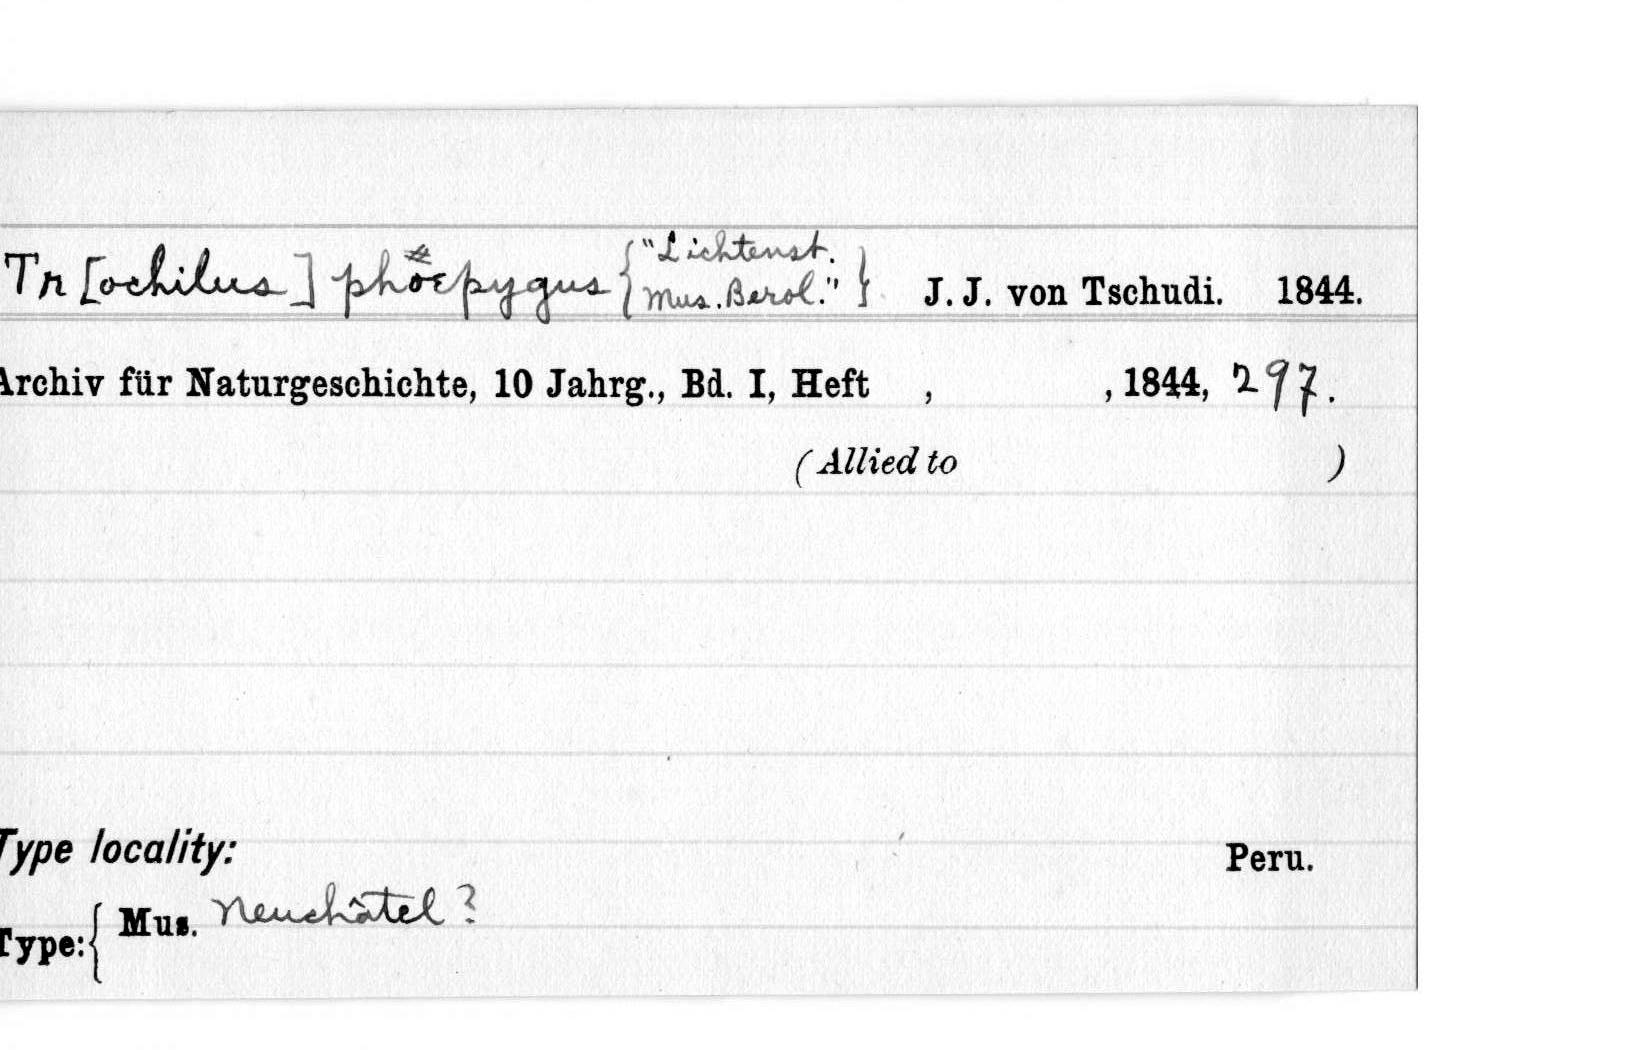 Tr[ochilus] phœopygus {"Lichtenst. Mus. Berol."} J. J. von Tschudi. 1844.
Archiv für Naturgeschichte, 10 Jahrg., Bd. I, Heft , , 1844, 297.
(Allied to )
Type locality: Peru.
Type: { Mus. Neuchâtel ?